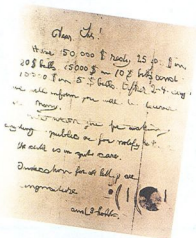 Dear Sir!
Have 50.000 $ redy 25 000 $ in
20 $ bills 15000 $ in 10 $ bills and
10000 $ in 5 $ bills After 2-4 days
we will inform you were to deliver
the mony.
We warn you for making
any ding public or for notify the
the child is in gut care.
Indication for all letters are
singnature
and 3 holes.